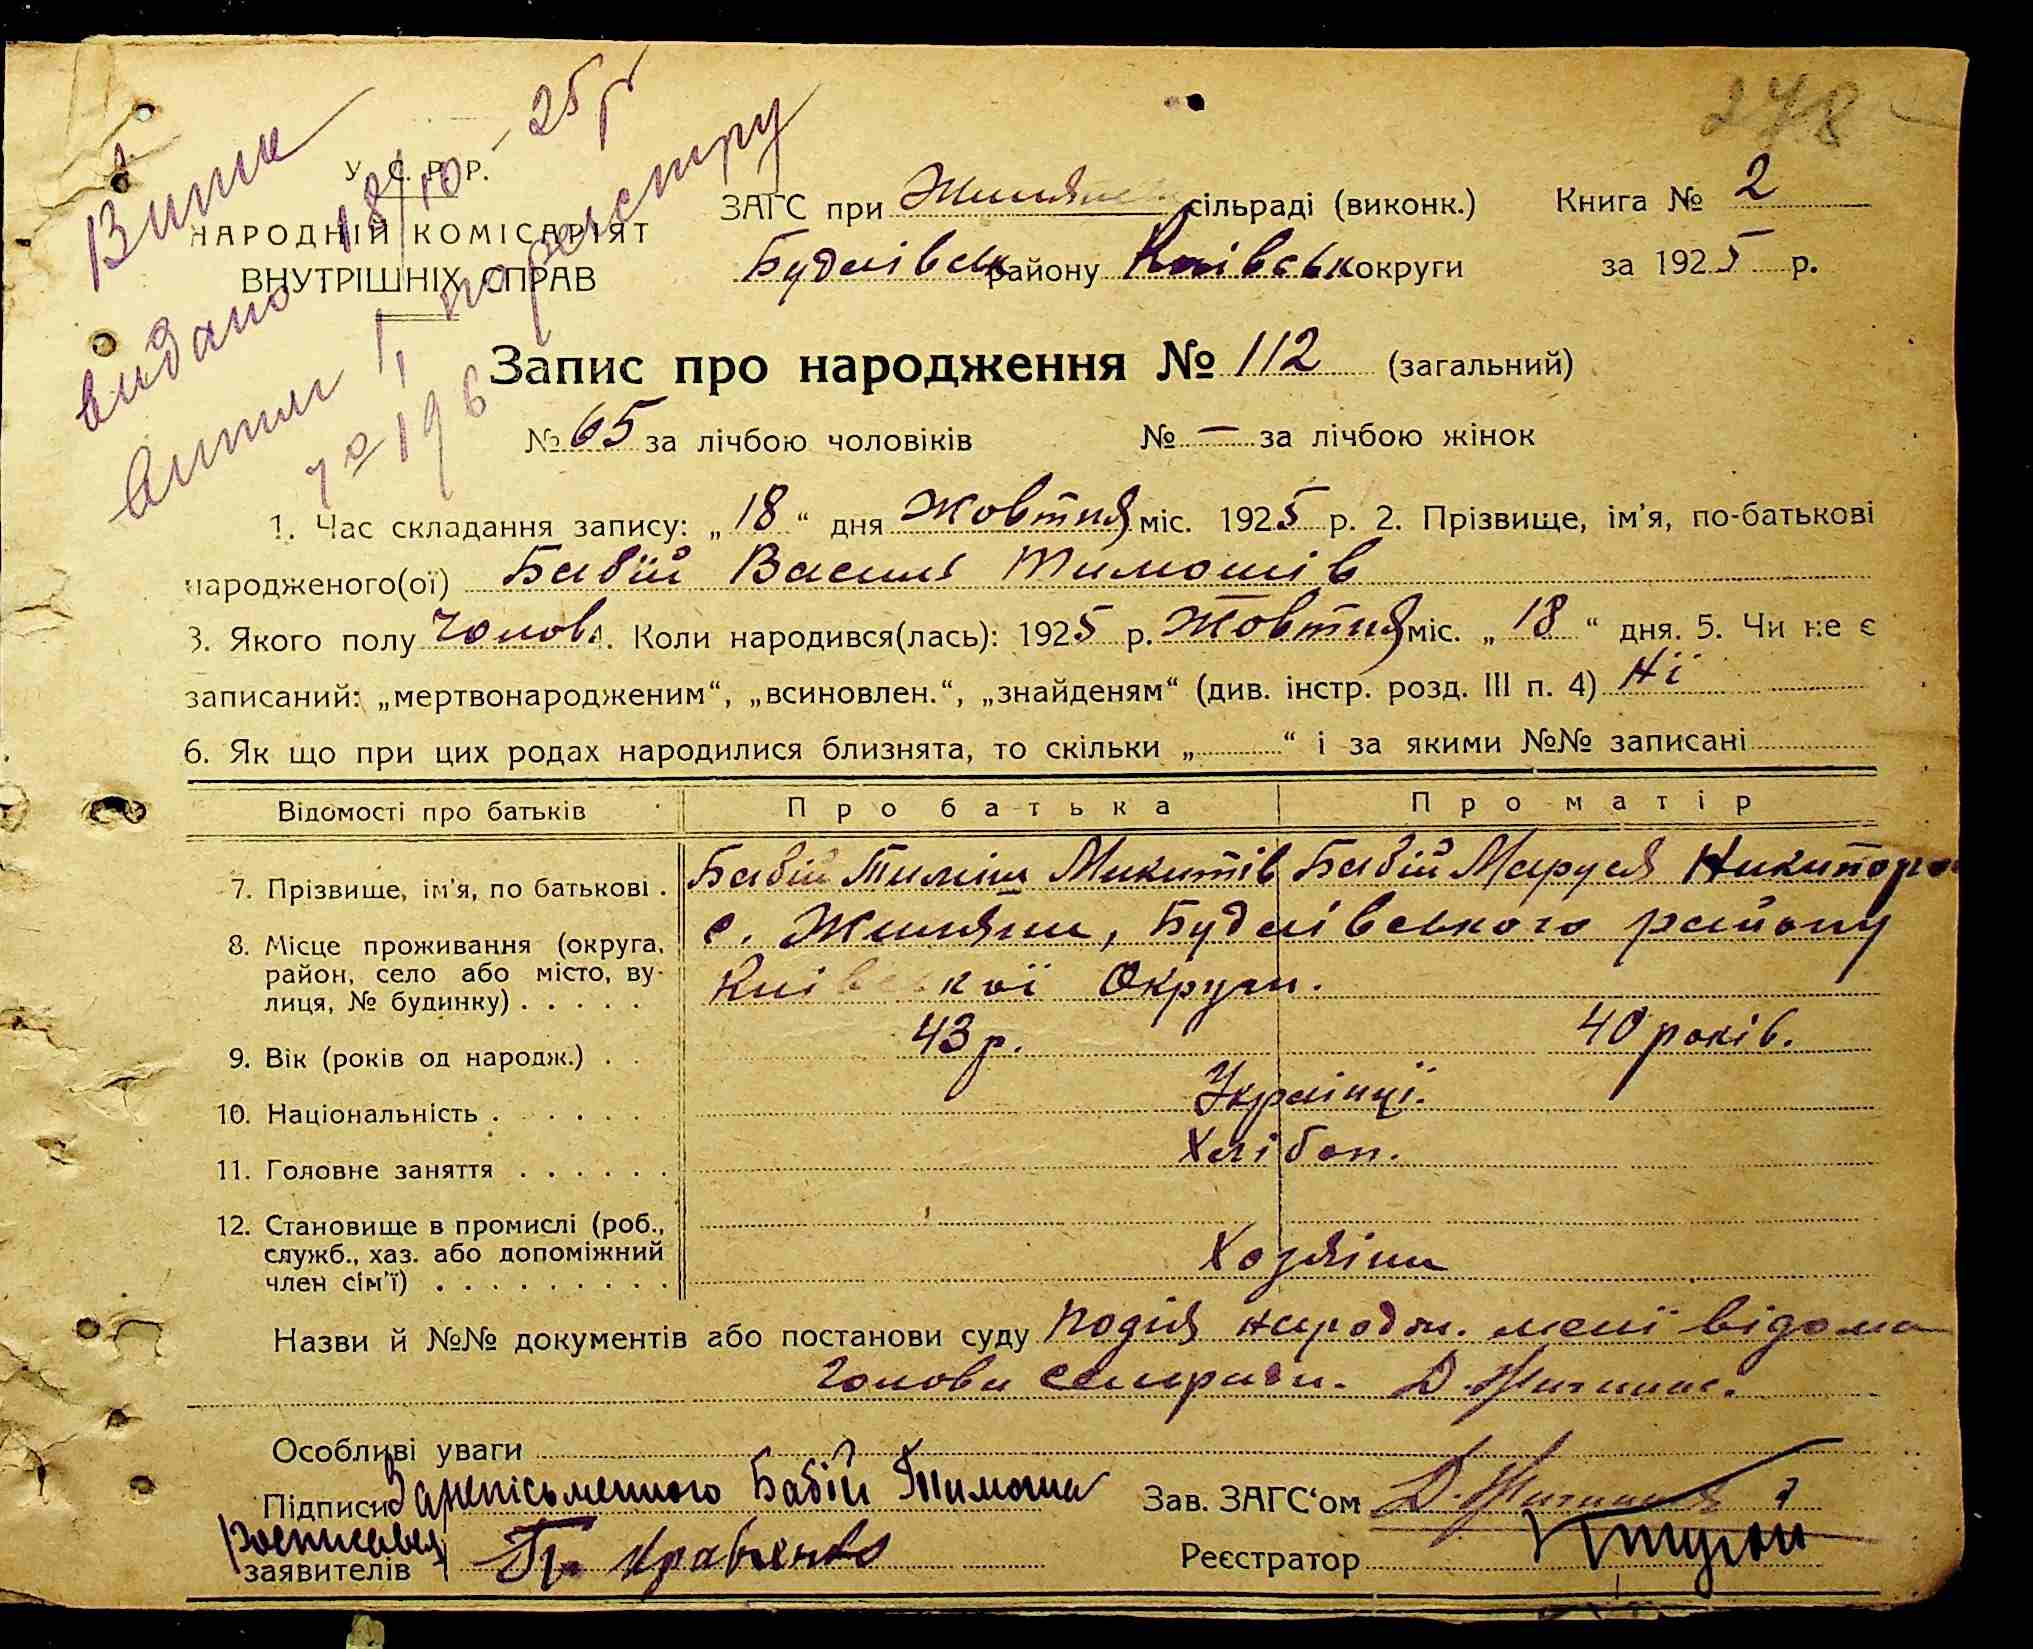 278
Випис
видано 18/10 - 25 р
по реєстру
за № 196
У. С. Р. Р.
НАРОДНІЙ КОМІСАРІЯТ
ВНУТРІШНІХ СПРАВ
ЗАГС при Жилян сільраді (виконк.) Книга № 2
Будаївськ району Київськ округи за 1925 р.
Запис про народження № 112 (загальний)
№ 65 за лічбою чоловіків № — за лічбою жінок
1. Час складання запису: „18“ дня Жовтня міс. 1925 р. 2. Прізвище, ім'я, по-батькові
народженого(ої) Бабій Василь Тимошів
3. Якого полу Чолов. 4. Коли народився(лась): 1925 р. Жовтня міс. „18“ дня. 5. Чи не є
записаний: „мертвонародженим“, „всиновлен.“, „знайденям“ (див. інстр. розд. III п. 4) Ні
6. Як що при цих родах народилися близнята, то скільки „ “ і за якими №№ записані
Відомості про батьків Про батька Про матір
7. Прізвище, ім'я, по батькові . Бабій Тиміш Микитів Бабій Маруся Никипоров
8. Місце проживання (округа, район, село або місто, вулиця, № будинку) . . . . . с. Жиляни, Будаївського району
Київської Округи.
9. Вік (років од народж.) . . 43 р. 40 років.
10. Національність . . . . . . Українці.
11. Головне заняття . . . . . . Хлібоп.
12. Становище в промислі (роб., служб., хаз. або допоміжний член сім'ї) . . . . . . . . . Хозяїни
Назви й №№ документів або постанови суду Подія народж. мені відома
Голова сільради. Д.
Особливі уваги
Підписи За неписьменного Бабій Тимоша Зав. ЗАГС‘ом Д.
росписався
заявителів Гр. Кравченко Реєстратор